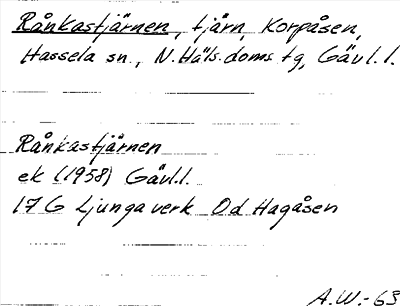 Rånkastjärnen, tjärn, Korpåsen,
Hassela sn., N.Häls.doms tg, Gävl.l.
Rånkastjärnen
ek (1958) Gävl.l.
17 G Ljungaverk Od Hagåsen
A.W.-63